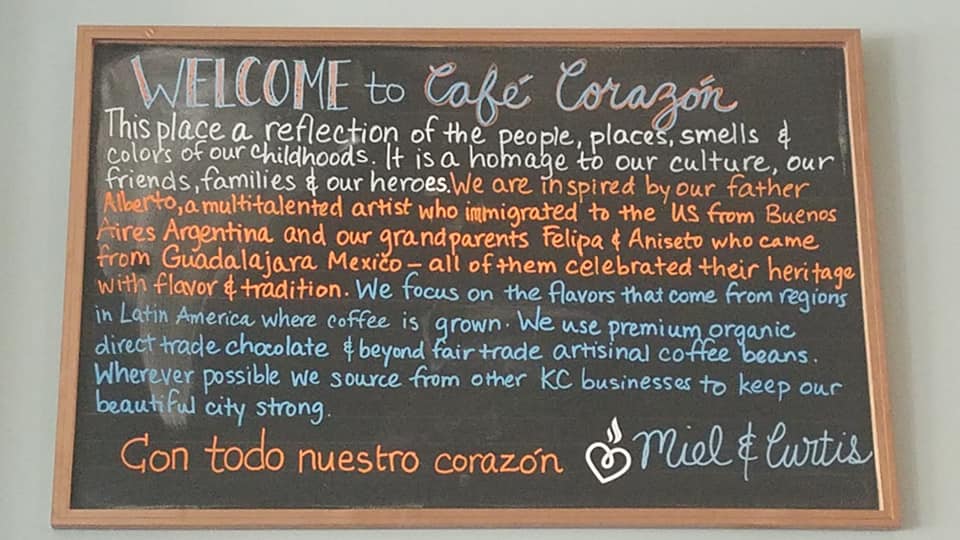 WELCOME to Café Corazón
This place a reflection of the people, places, smells &
colors of our childhoods. It is a homage to our culture, our
friends, families & our heroes. We are inspired by our father
Alberto, a multitalented artist who immigrated to the US from Buenos
Aires Argentina and our grandparents Felipa & Aniseto who came
from Guadalajara Mexico – all of them celebrated their heritage
with flavor & tradition. We focus on the flavors that come from regions
in Latin America where coffee is grown. We use premium organic
direct trade chocolate & beyond fair trade artisinal coffee beans.
Wherever possible we source from other KC businesses to keep our
beautiful city strong.
Con todo nuestro corazón Miel & Curtis